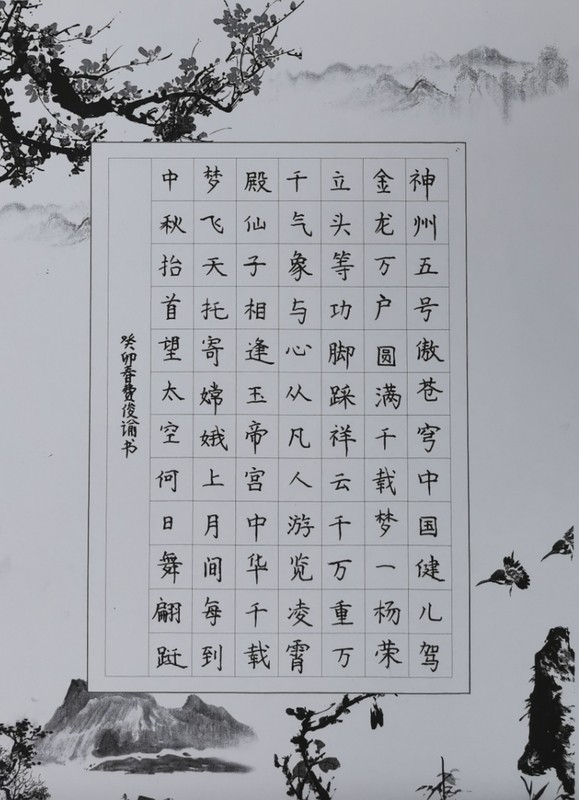 神州五号傲苍穹中国健儿驾
金龙万户圆满千载梦一杨荣
立头等功脚踩祥云千万重万
千气象与心从凡人游览凌霄
殿仙子相逢玉帝宫中华千载
梦飞天托寄嫦娥上月间每到
中秋抬首望太空何日舞翩跹
癸卯春费俊谕书